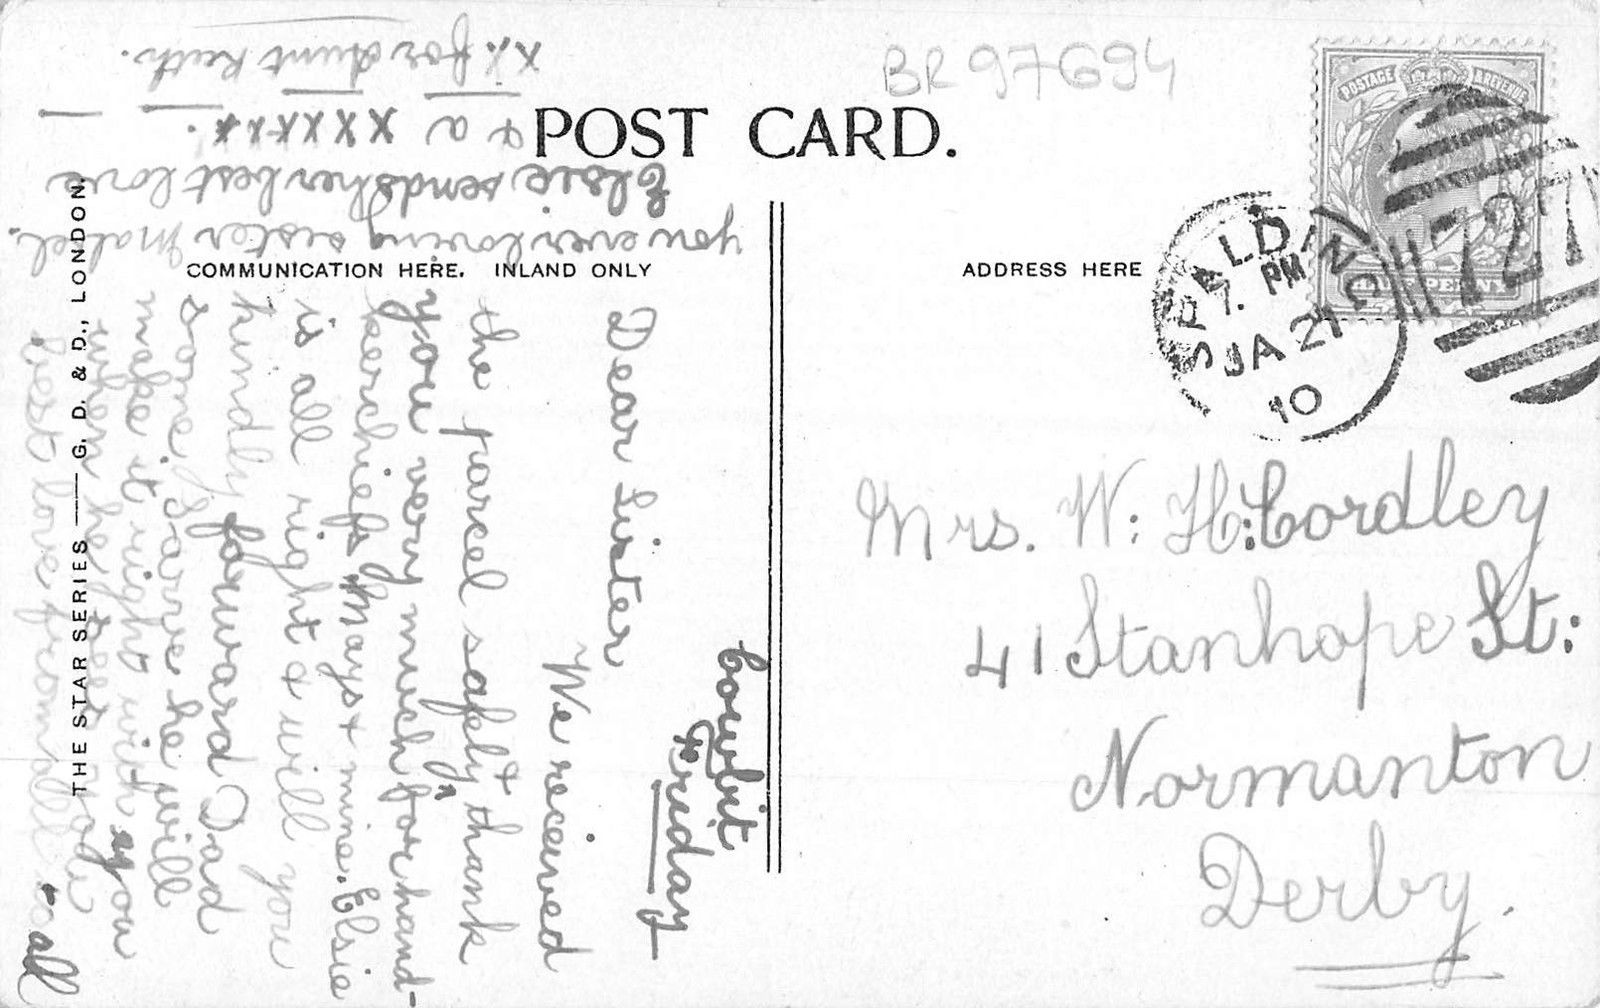 BR 97694
POST CARD.
COMMUNICATION HERE. INLAND ONLY
ADDRESS HERE
THE STAR SERIES — G. D. & D., LONDON.
POSTAGE & REVENUE
HALF PENNY
SPALDING
D
7. PM
JA 21
10
727
Mrs. W: H: Cordley
41 Stanhope St:
Normanton
Derby.
Cowbit
Friday
Dear Sister
We received
the parcel safely & thank
you very much for hand-
kerchiefs Mays & mine. Elsie
is all right & will you
kindly forward Dad
some he will
make it right with you
when he
Best love from all to all
you ever loving sister Mabel.
Elsie sends her best love
& a xxxxxx.
xx for Aunt